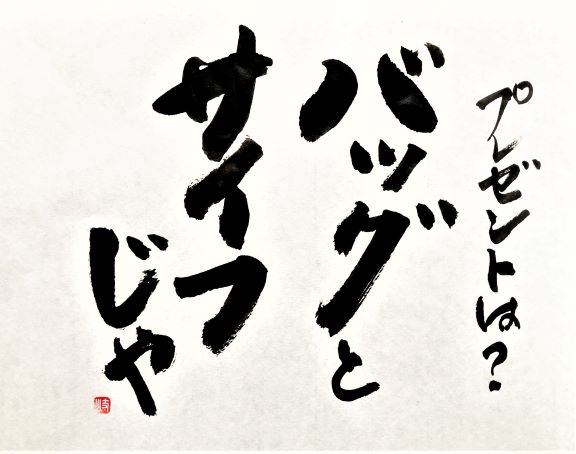 プレゼントは?
バッグと
サイフ
じゃ